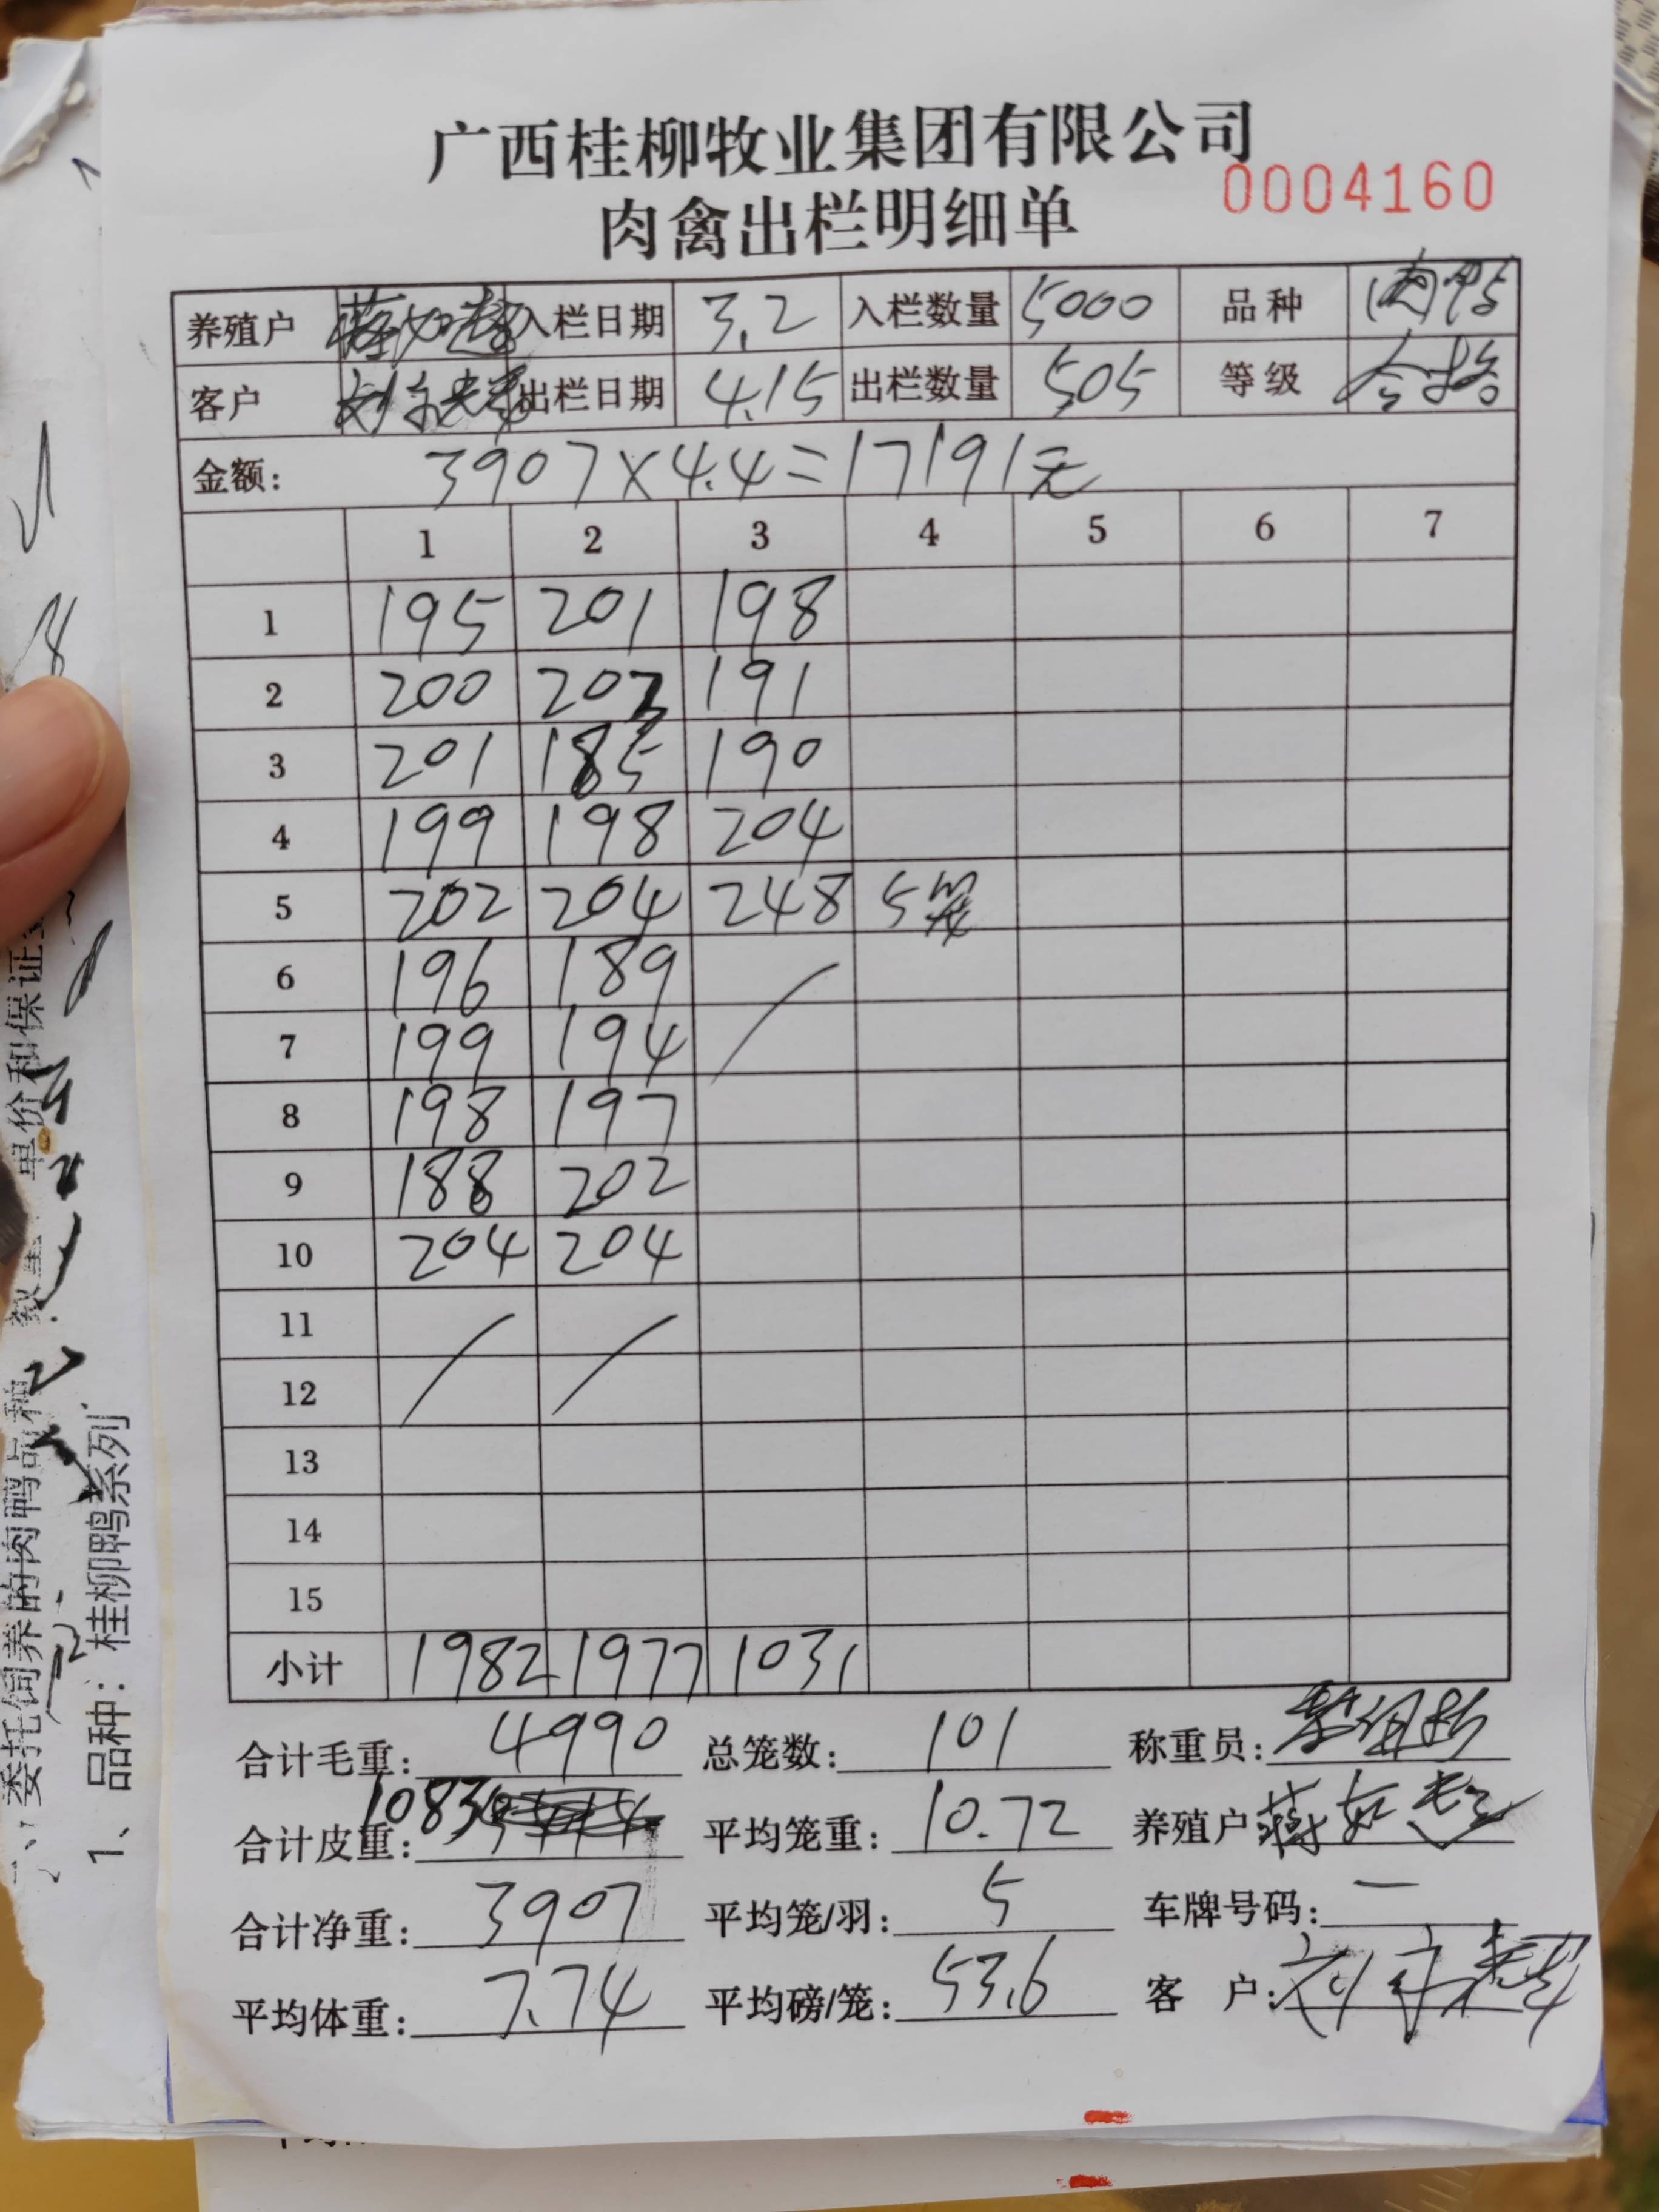 广西桂柳牧业集团有限公司
肉禽出栏明细单 0004160
养殖户 蒋如超 入栏日期 3.2 入栏数量 5000 品种 肉鸭
客户 出栏日期 4.15 出栏数量 505 等级 合格
金额: 3907×4.4=17191元
1 2 3 4 5 6 7
1 195 201 198
2 200 203 191
3 201 185 190
4 199 198 204
5 202 204 248 5笼
6 196 189
7 199 194
8 198 197
9 188 202
10 204 204
11
12
13
14
15
小计 1982 1977 1031
合计毛重: 4990 总笼数: 101 称重员:
合计皮重: 1083 平均笼重: 10.72 养殖户 蒋如超
合计净重: 3907 平均笼/羽: 5 车牌号码: —
平均体重: 7.74 平均磅/笼: 53.6 客 户:
委托饲养的肉鸭品种
单价和保证
1、品种: 桂柳鸭系列